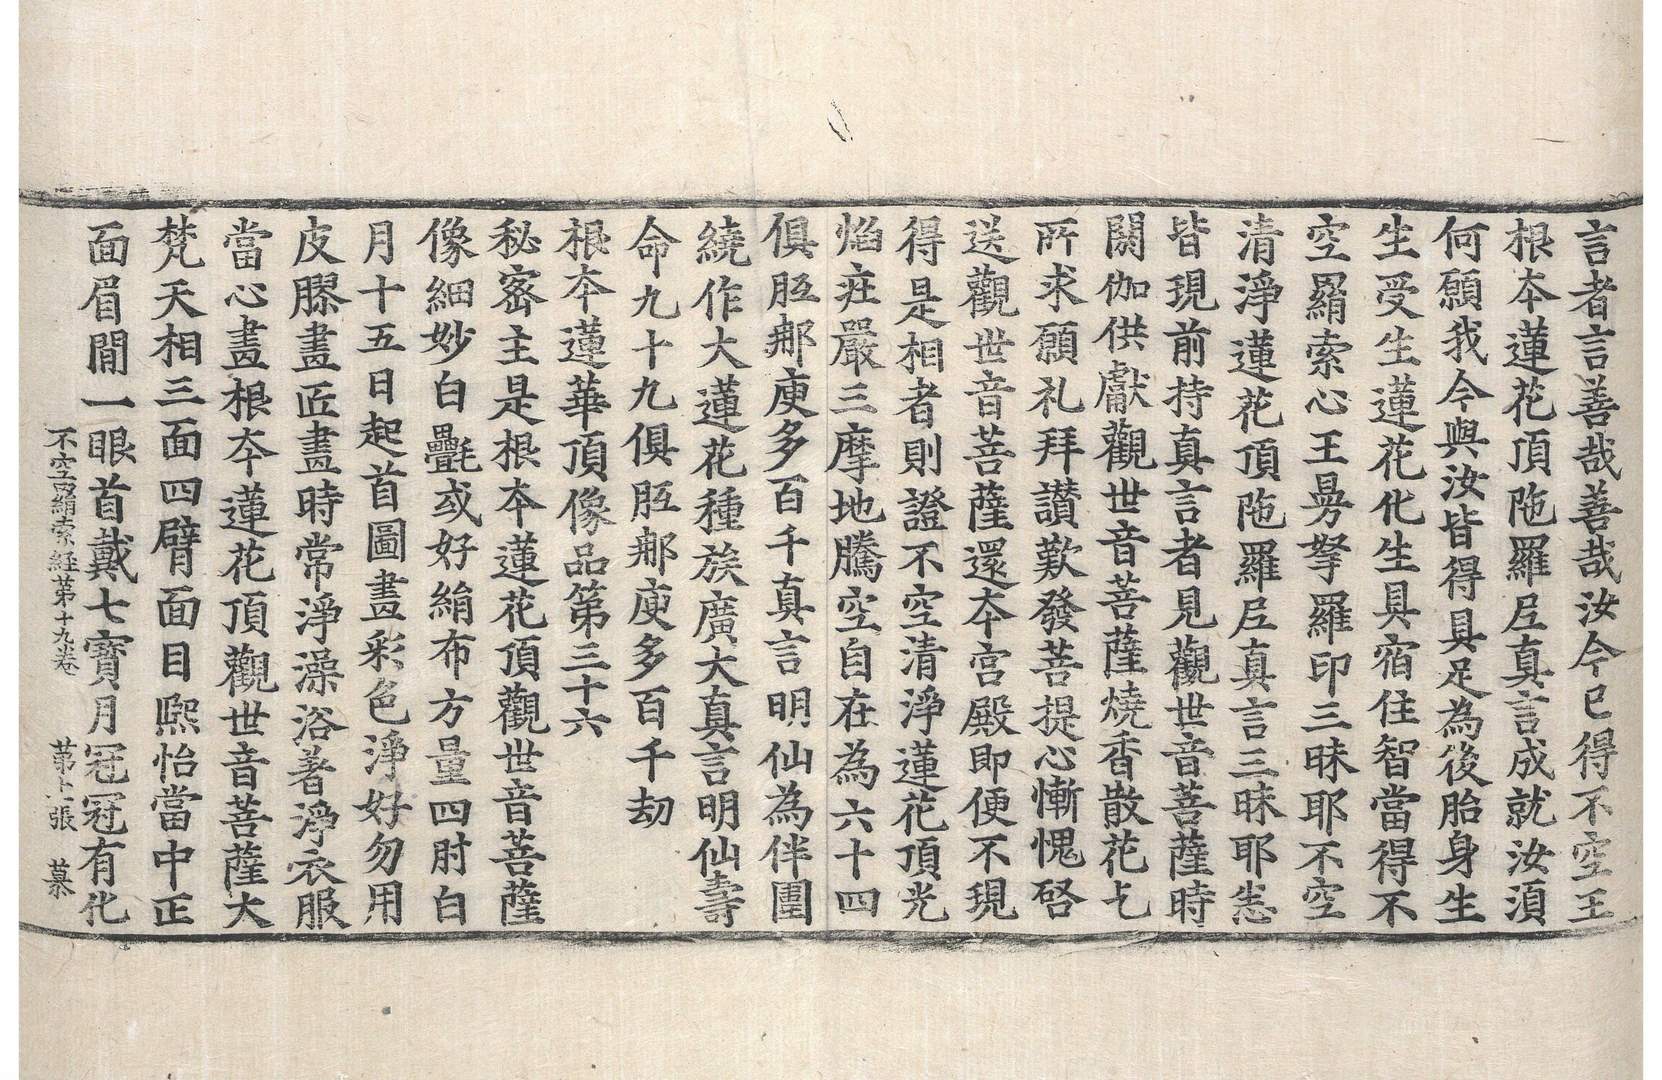 言者言善哉善哉汝今已得不空王
根夲蓮花頂陁羅尼真言成就汝湏
何願我今與汝皆得具足為後胎身生
生受生生蓮花化生具宿住智當得不
空羂索心王旉拏羅印三昧耶不空
清淨蓮花頂陁羅尼真言三昧耶悉
皆現前持真言者見觀世音菩薩時
閼伽供獻觀世音菩薩燒香散花乞
所求願礼拜讃歎發菩提心慚愧啓
送觀世音菩薩還夲宫殿即便不現
得是相者則證不空清淨蓮花頂光
焰莊嚴三摩地騰空自在為六十四
俱胝郍庾多百千真言明仙為伴圍
繞作大蓮花種族廣大真言明仙壽
命九十九俱胝郍庾多百千劫
根夲蓮華頂像品第三十六
秘密主是根夲蓮花頂觀世音菩薩
像細妙白㲲或好絹布方量四肘白
月十五日起首圖畫彩色淨好勿用
皮膠畫匠畫時常淨澡浴著淨衣服
當心畫根夲蓮花頂觀世音菩薩大
梵天相三面四臂面目熈怡當中正
面眉間一眼首戴七寶月冠冠有化
不空羂索経第十九卷　第十張　慕